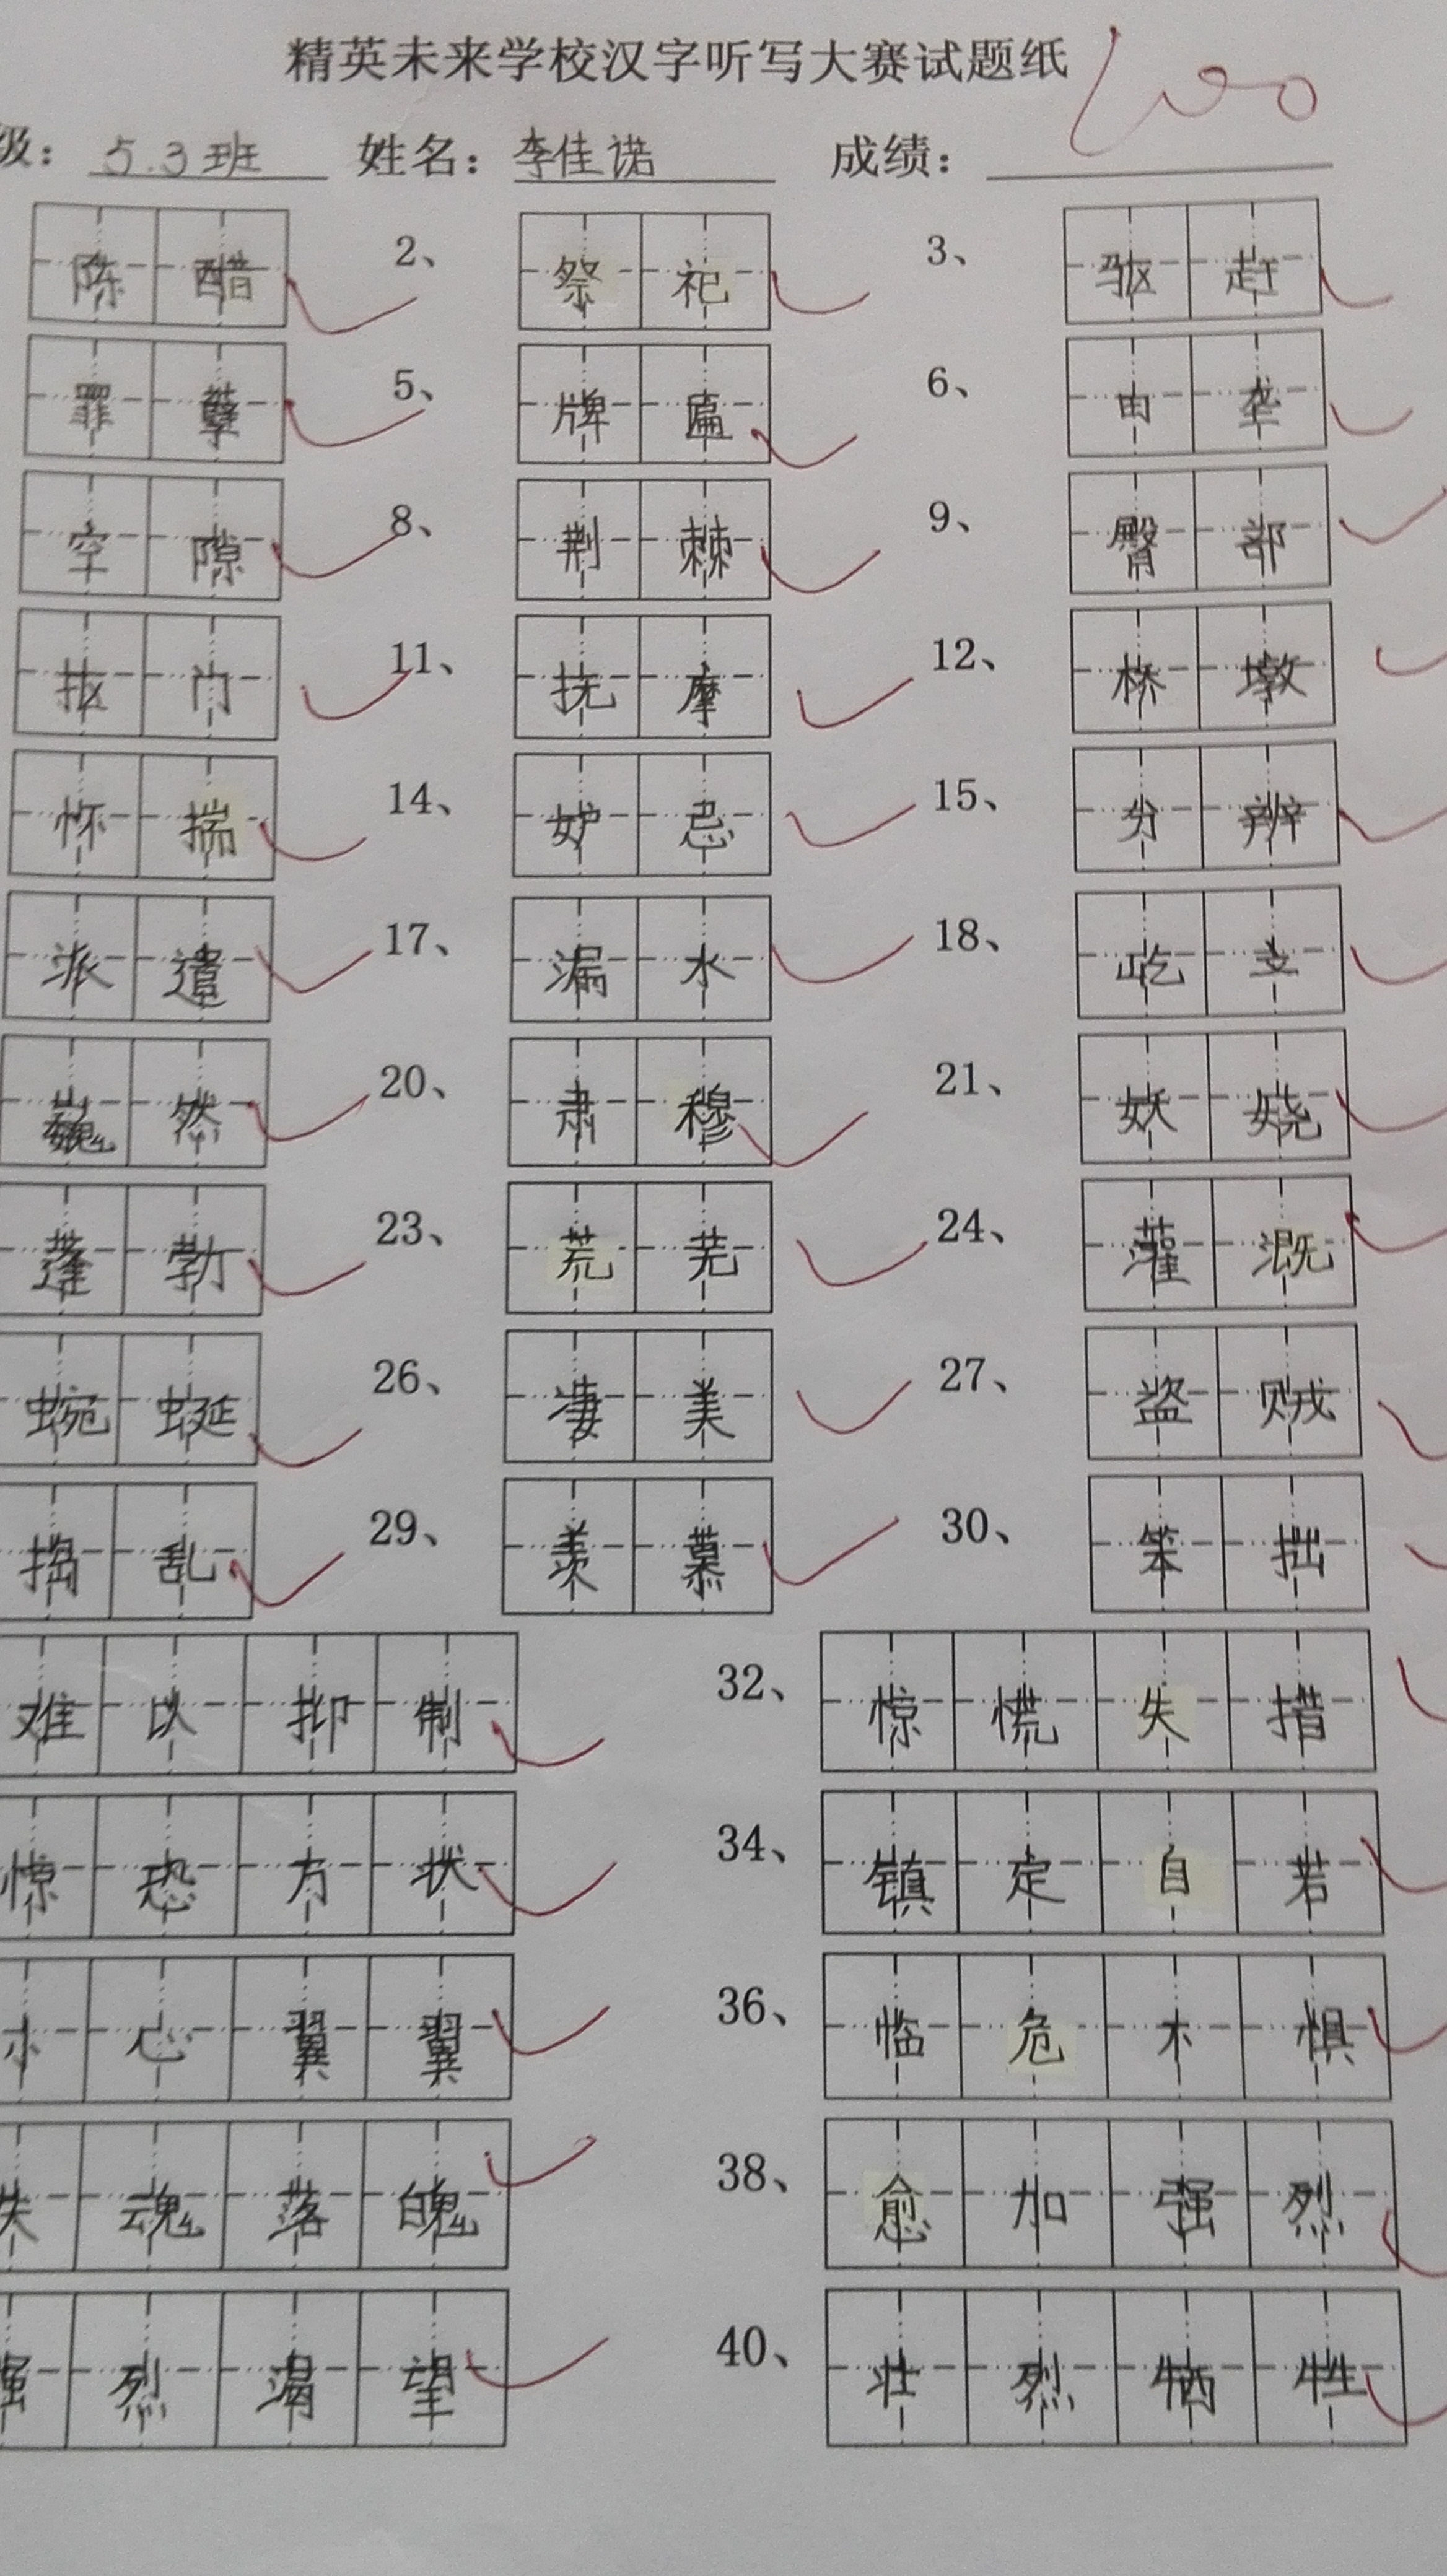 精英未来学校汉字听写大赛试题纸
级：5.3班 姓名：李佳诺 成绩：100
陈醋 2、祭祀 3、驱赶
罪孽 5、牌匾 6、由垄
空隙 8、荆棘 9、臀部
抠门 11、抚摩 12、桥墩
怀揣 14、妒忌 15、分辨
派遣 17、漏水 18、屹立
巍然 20、肃穆 21、妖娆
蓬勃 23、荒芜 24、灌溉
蜿蜒 26、凄美 27、盗贼
捣乱 29、羡慕 30、笨拙
难以抑制 32、惊慌失措
惊恐万状 34、镇定自若
小心翼翼 36、临危不惧
失魂落魄 38、愈加强烈
强烈渴望 40、壮烈牺牲